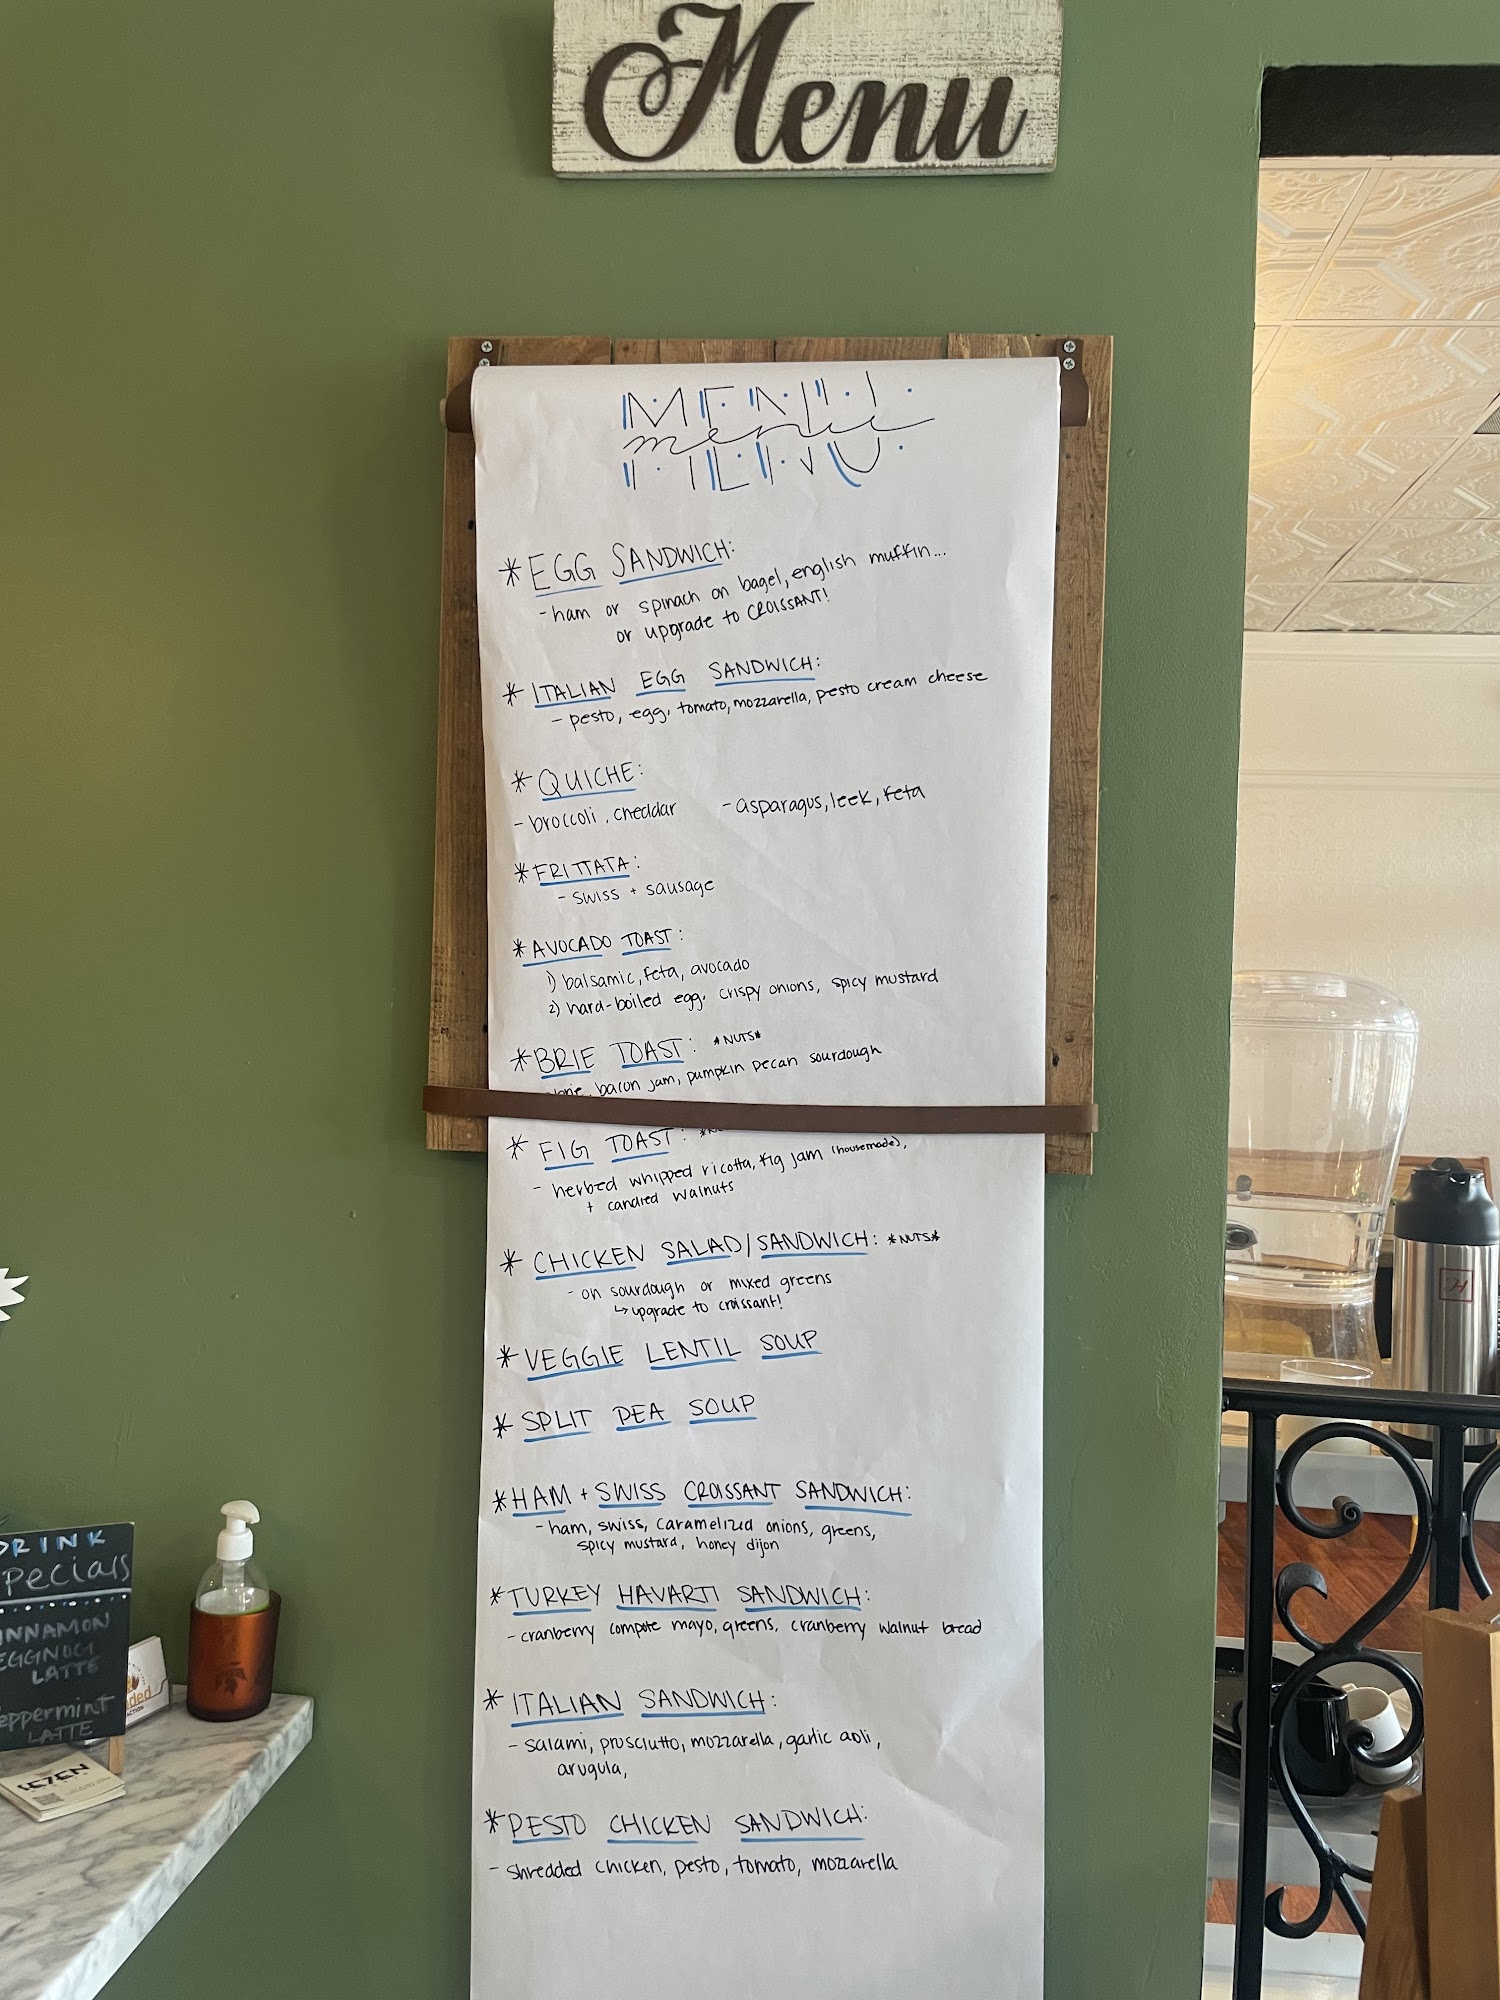 Menu
MENU
menu
MENU
* EGG SANDWICH:
- ham or spinach on bagel, english muffin...
or upgrade to CROISSANT!
* ITALIAN EGG SANDWICH:
- pesto, egg, tomato, mozzarella, pesto cream cheese
* QUICHE:
- broccoli, cheddar - asparagus, leek, feta
* FRITTATA:
- swiss + sausage
* AVOCADO TOAST:
1) balsamic, feta, avocado
2) hard-boiled egg, crispy onions, spicy mustard
* BRIE TOAST: *NUTS*
brie, bacon jam, pumpkin pecan sourdough
* FIG TOAST:
- herbed whipped ricotta, fig jam (housemade),
+ candied walnuts
* CHICKEN SALAD/SANDWICH: *NUTS*
- on sourdough or mixed greens
↳ upgrade to croissant!
* VEGGIE LENTIL SOUP
* SPLIT PEA SOUP
* HAM + SWISS CROISSANT SANDWICH:
- ham, swiss, caramelized onions, greens,
spicy mustard, honey dijon
* TURKEY HAVARTI SANDWICH:
- cranberry compote mayo, greens, cranberry walnut bread
* ITALIAN SANDWICH:
- salami, prosciutto, mozzarella, garlic aoli,
arugula,
* PESTO CHICKEN SANDWICH:
- shredded chicken, pesto, tomato, mozzarella
DRINK
specials
CINNAMON
EGGNOG
LATTE
peppermint
LATTE
H